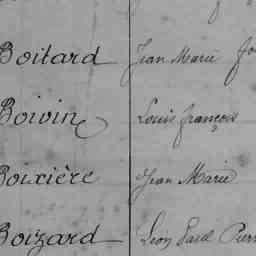 Boitard Jean Marie
Boivin Louis françois
Boixière Jean Marie
Boizard Léon Paul Pierr